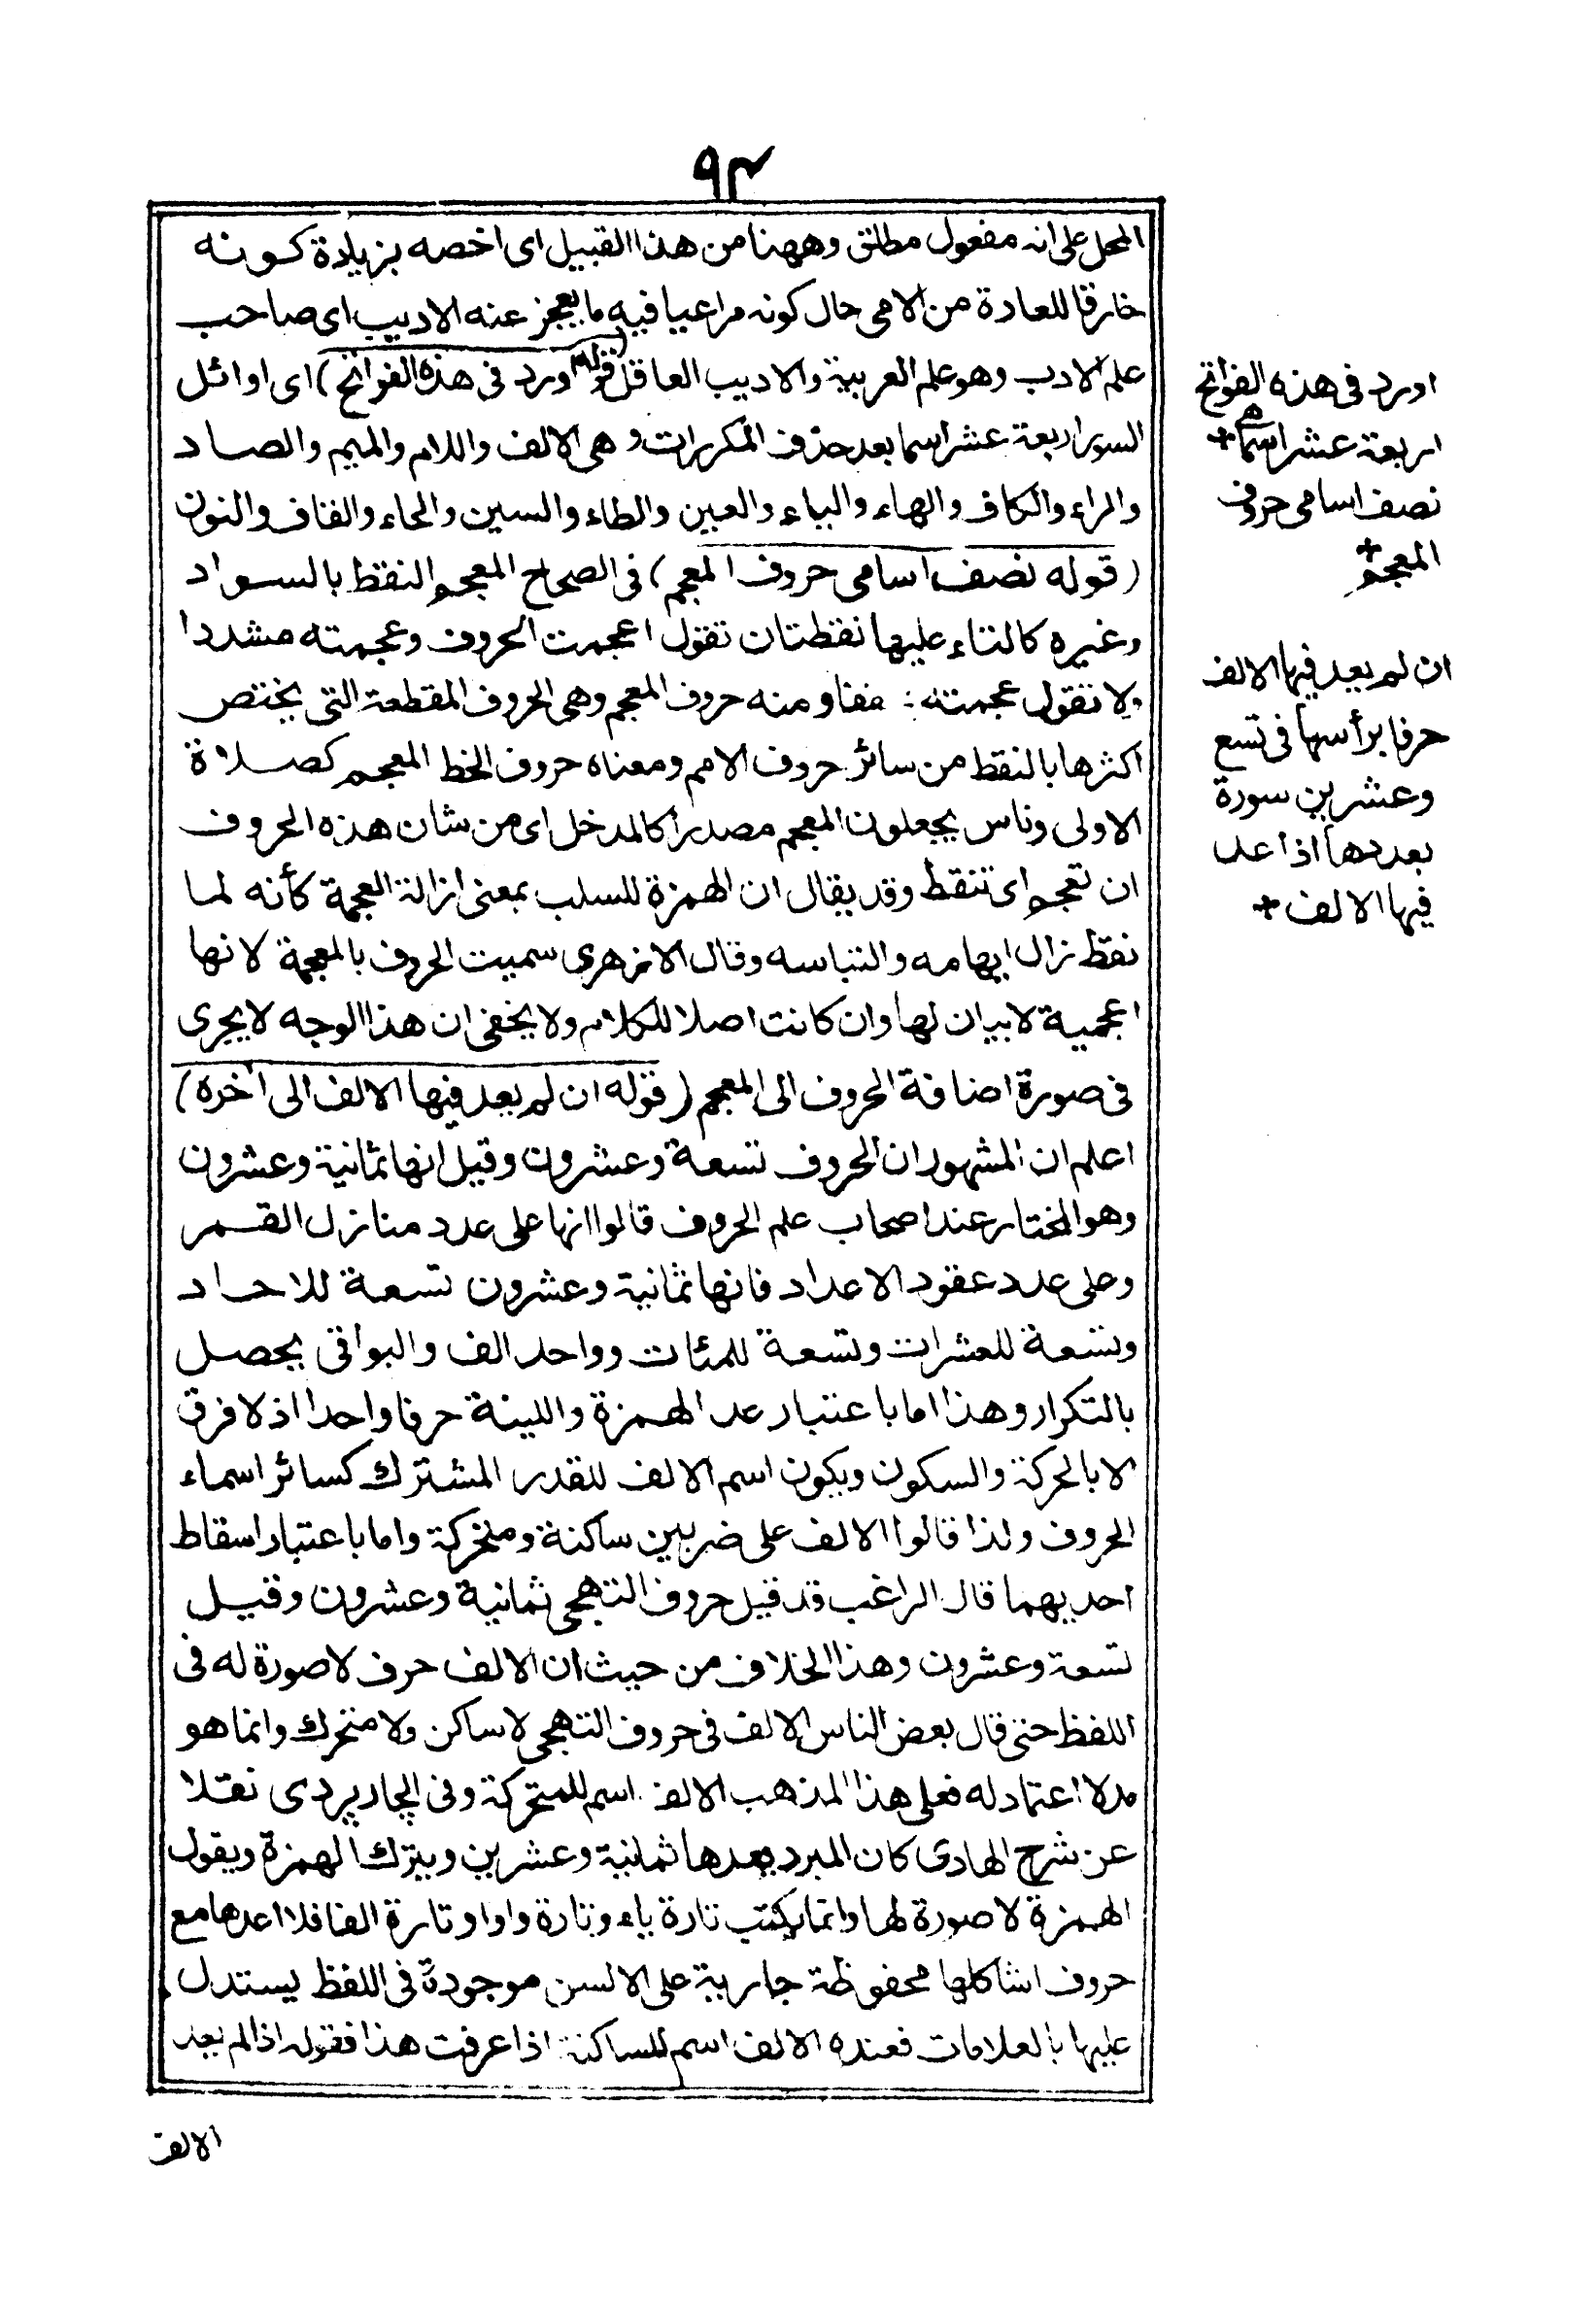 ٩٣
المحل على انه مفعول مطلق وههنا من هذا القبيل اى اخصه بزيادة كونه
خارقا للعادة من الامى حال كونه مراعيا فيه ما يعجز عنه الاديب اى صاحب
علم الادب وهو علم العربية والاديب العاقل (قوله اورد فى هذه الفواتح) اى اوائل
السور اربعة عشر اسما بعد حذف المكررات وهى الالف واللام والميم والصاد
والراء والكاف والهاء والياء والعين والطاء والسين والحاء والقاف والنون
(قوله نصف اسامى حروف المعجم) فى الصحاح المعجم النقط بالسواد
وغيره كالتاء عليها نقطتان تقول اعجمت الحروف وعجمته مشددا
ولا تقول عجمته مخففا ومنه حروف المعجم وهى الحروف المقطعة التى يختص
اكثرها بالنقط من سائر حروف الامم ومعناه حروف الخط المعجم كصلاة
الاولى وناس يجعلون المعجم مصدرا كالمدخل اى من شان هذه الحروف
ان تعجم اى تنقط وقد يقال ان الهمزة للسلب بمعنى ازالة العجمة كأنه لما
نقط زال ابهامه والتباسه وقال الازهرى سميت الحروف بالمعجمة لانها
اعجمية لا بيان لها وان كانت اصلا للكلام ولا يخفى ان هذا الوجه لا يجرى
فى صورة اضافة الحروف الى المعجم (قوله ان لم يعد فيها الالف الى آخره)
اعلم ان المشهور ان الحروف تسعة وعشرون وقيل انها ثمانية وعشرون
وهو المختار عند اصحاب علم الحروف قالوا انها على عدد منازل القمر
وعلى عدد عقود الاعداد فانها ثمانية وعشرون تسعة للاحاد
وتسعة للعشرات وتسعة للمئات وواحد الف والبواقى يحصل
بالتكرار وهذا اما باعتبار عد الهمزة واللينة حرفا واحدا اذ لا فرق
الا بالحركة والسكون ويكون اسم الالف للقدر المشترك كسائر اسماء
الحروف ولذا قالوا الالف على ضربين ساكنة ومتحركة واما باعتبار اسقاط
احديهما قال الراغب قد قيل حروف التهجى ثمانية وعشرون وقيل
تسعة وعشرون وهذا الخلاف من حيث ان الالف حرف لا صورة له فى
اللفظ حتى قال بعض الناس الالف فى حروف التهجى لا ساكن ولا متحرك وانما هو
مد لا اعتماد له فعلى هذا المذهب الالف اسم للمتحركة وفى الچارپردى نقلا
عن شرح الهادى كان المبرد يعدها ثمانية وعشرين ويترك الهمزة ويقول
الهمزة لا صورة لها وانما يكتب تارة ياء وتارة واوا وتارة الفا فلا اعدها مع
حروف اشاكلها محفوظة جارية على الالسن موجودة فى اللفظ يستدل
عليها بالعلامات فعنده الالف اسم للساكنة اذا عرفت هذا فقوله اذا لم يعد
الالف
اورد فى هذه الفواتح
اربعة عشر اسما
نصف اسامى حروف
المعجم
ان لم يعد فيها الالف
حرفا برأسها فى تسع
وعشرين سورة
بعددها اذا عد
فيها الالف